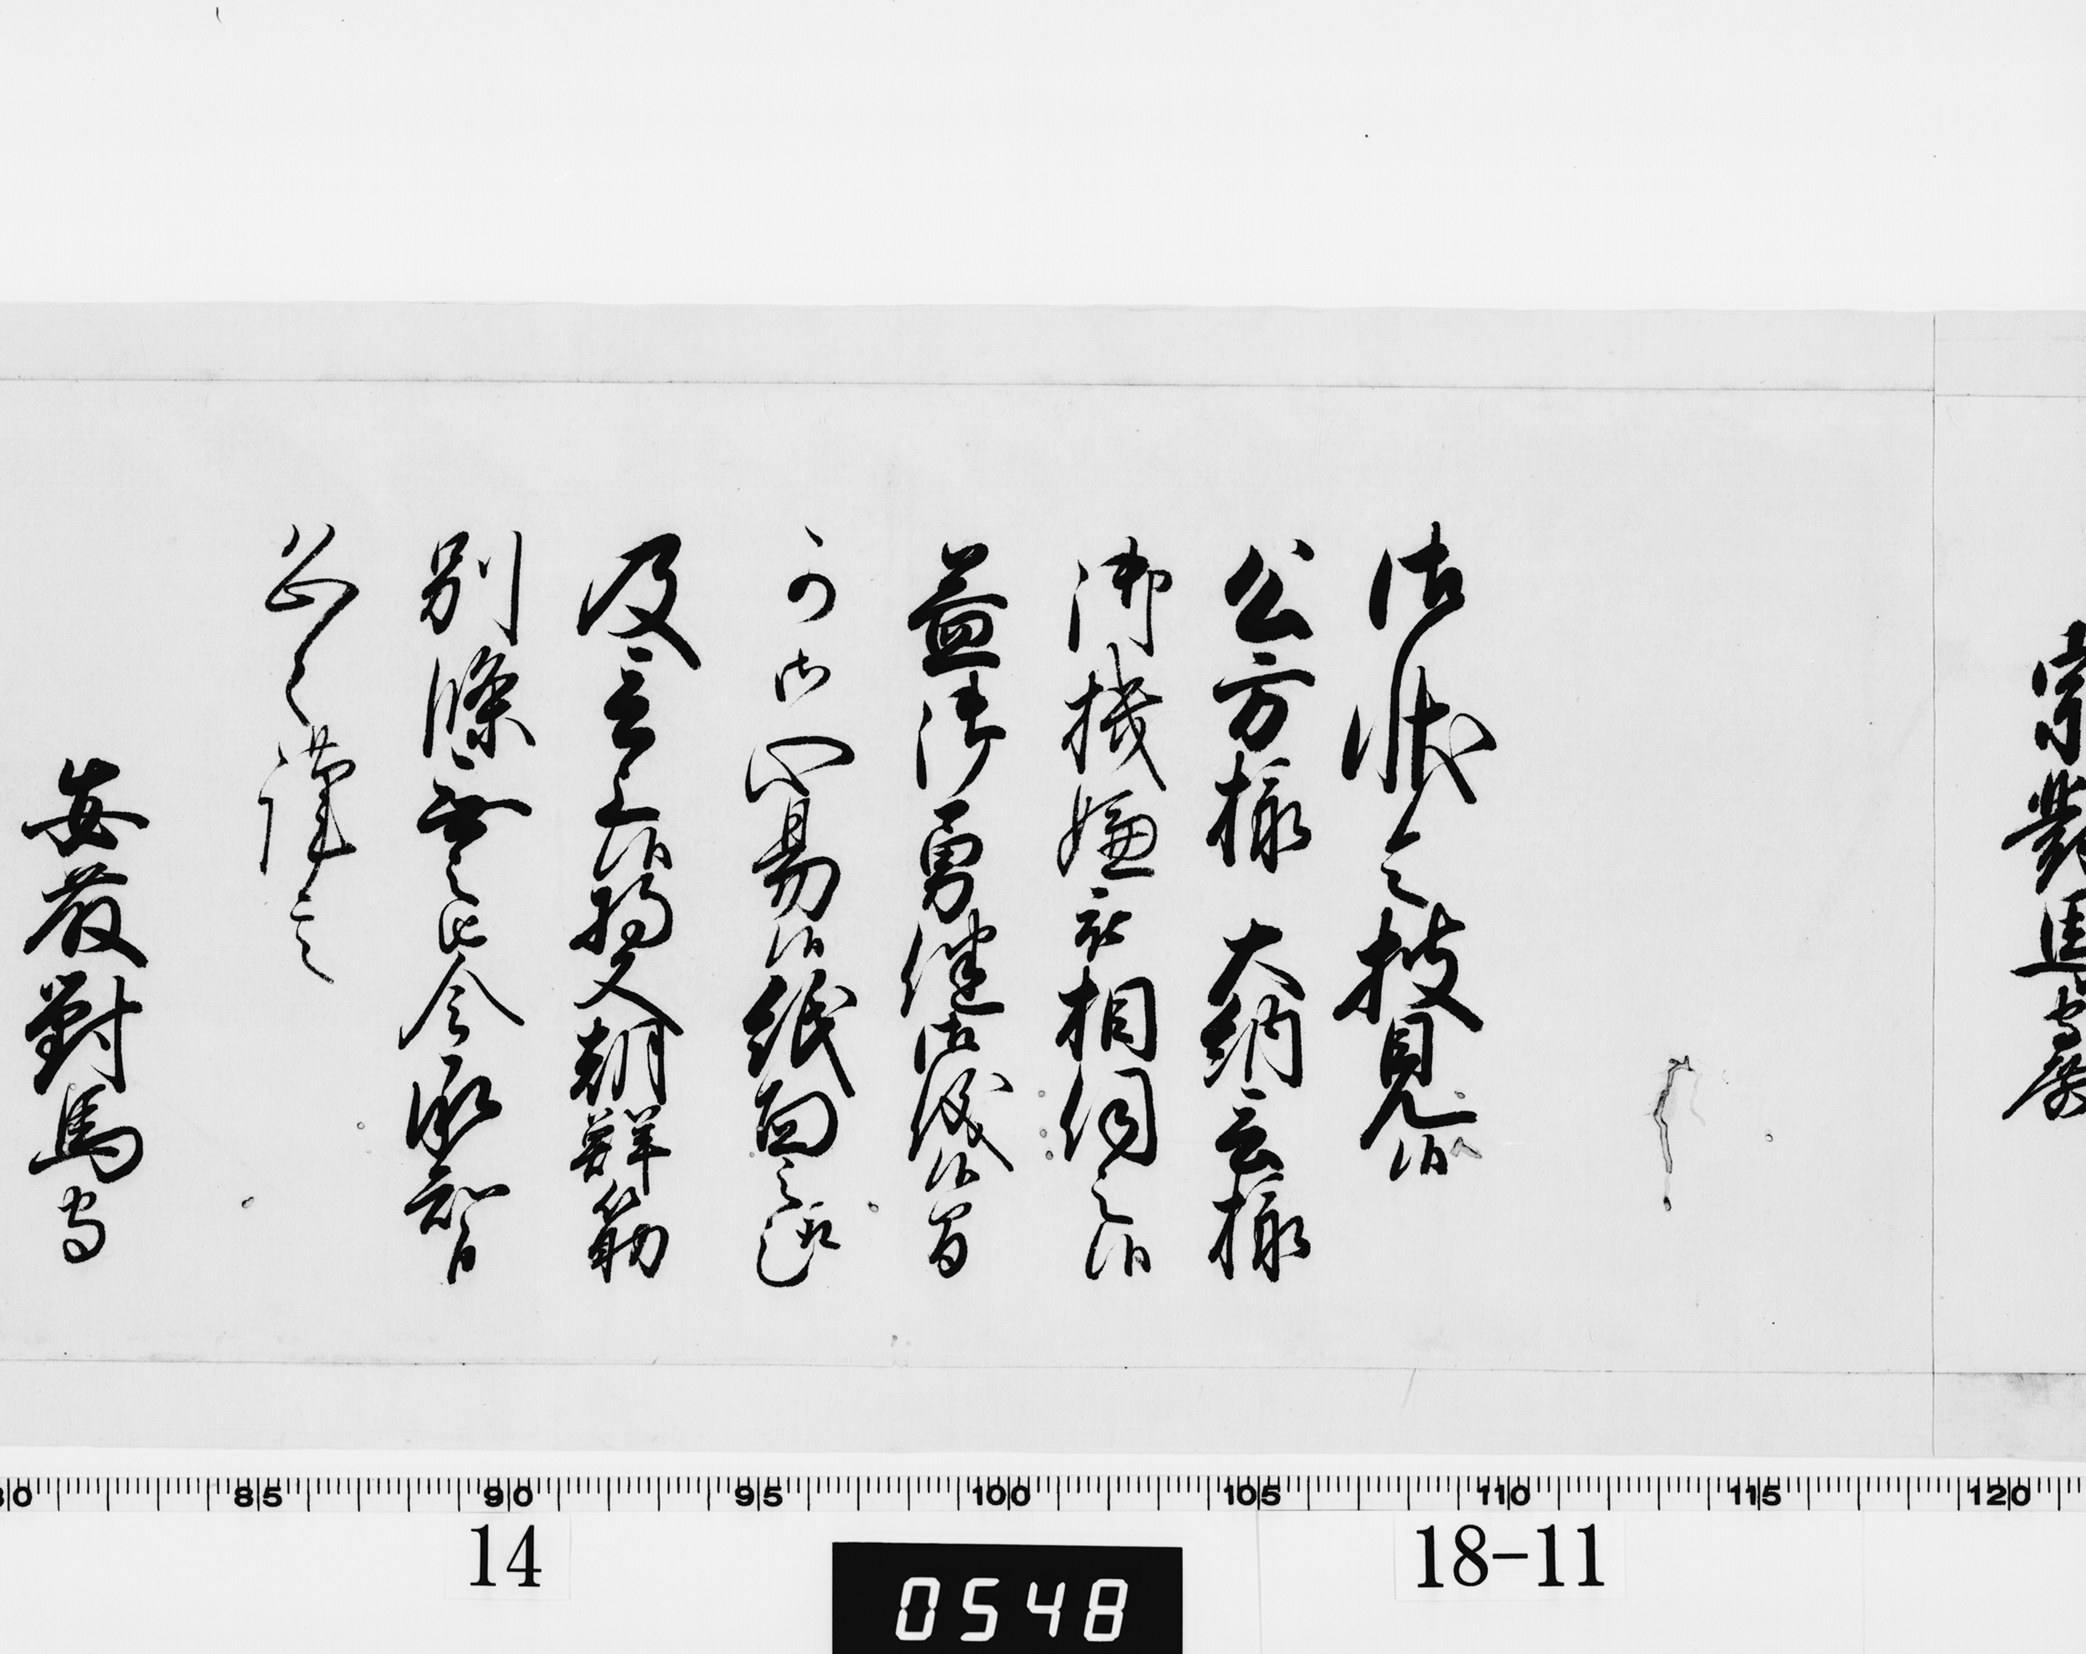 宗對馬守殿
御状令披見候
公方様 大納言様
御機嫌被相伺之候
益御勇健御儀候間
可御心易候紙面之趣
及言上候将又朝鮮筋
別條無之由令承知
候恐々謹言
安藤對馬守
80 85 90 95 100 105 110 115 120
14 18-11
0548